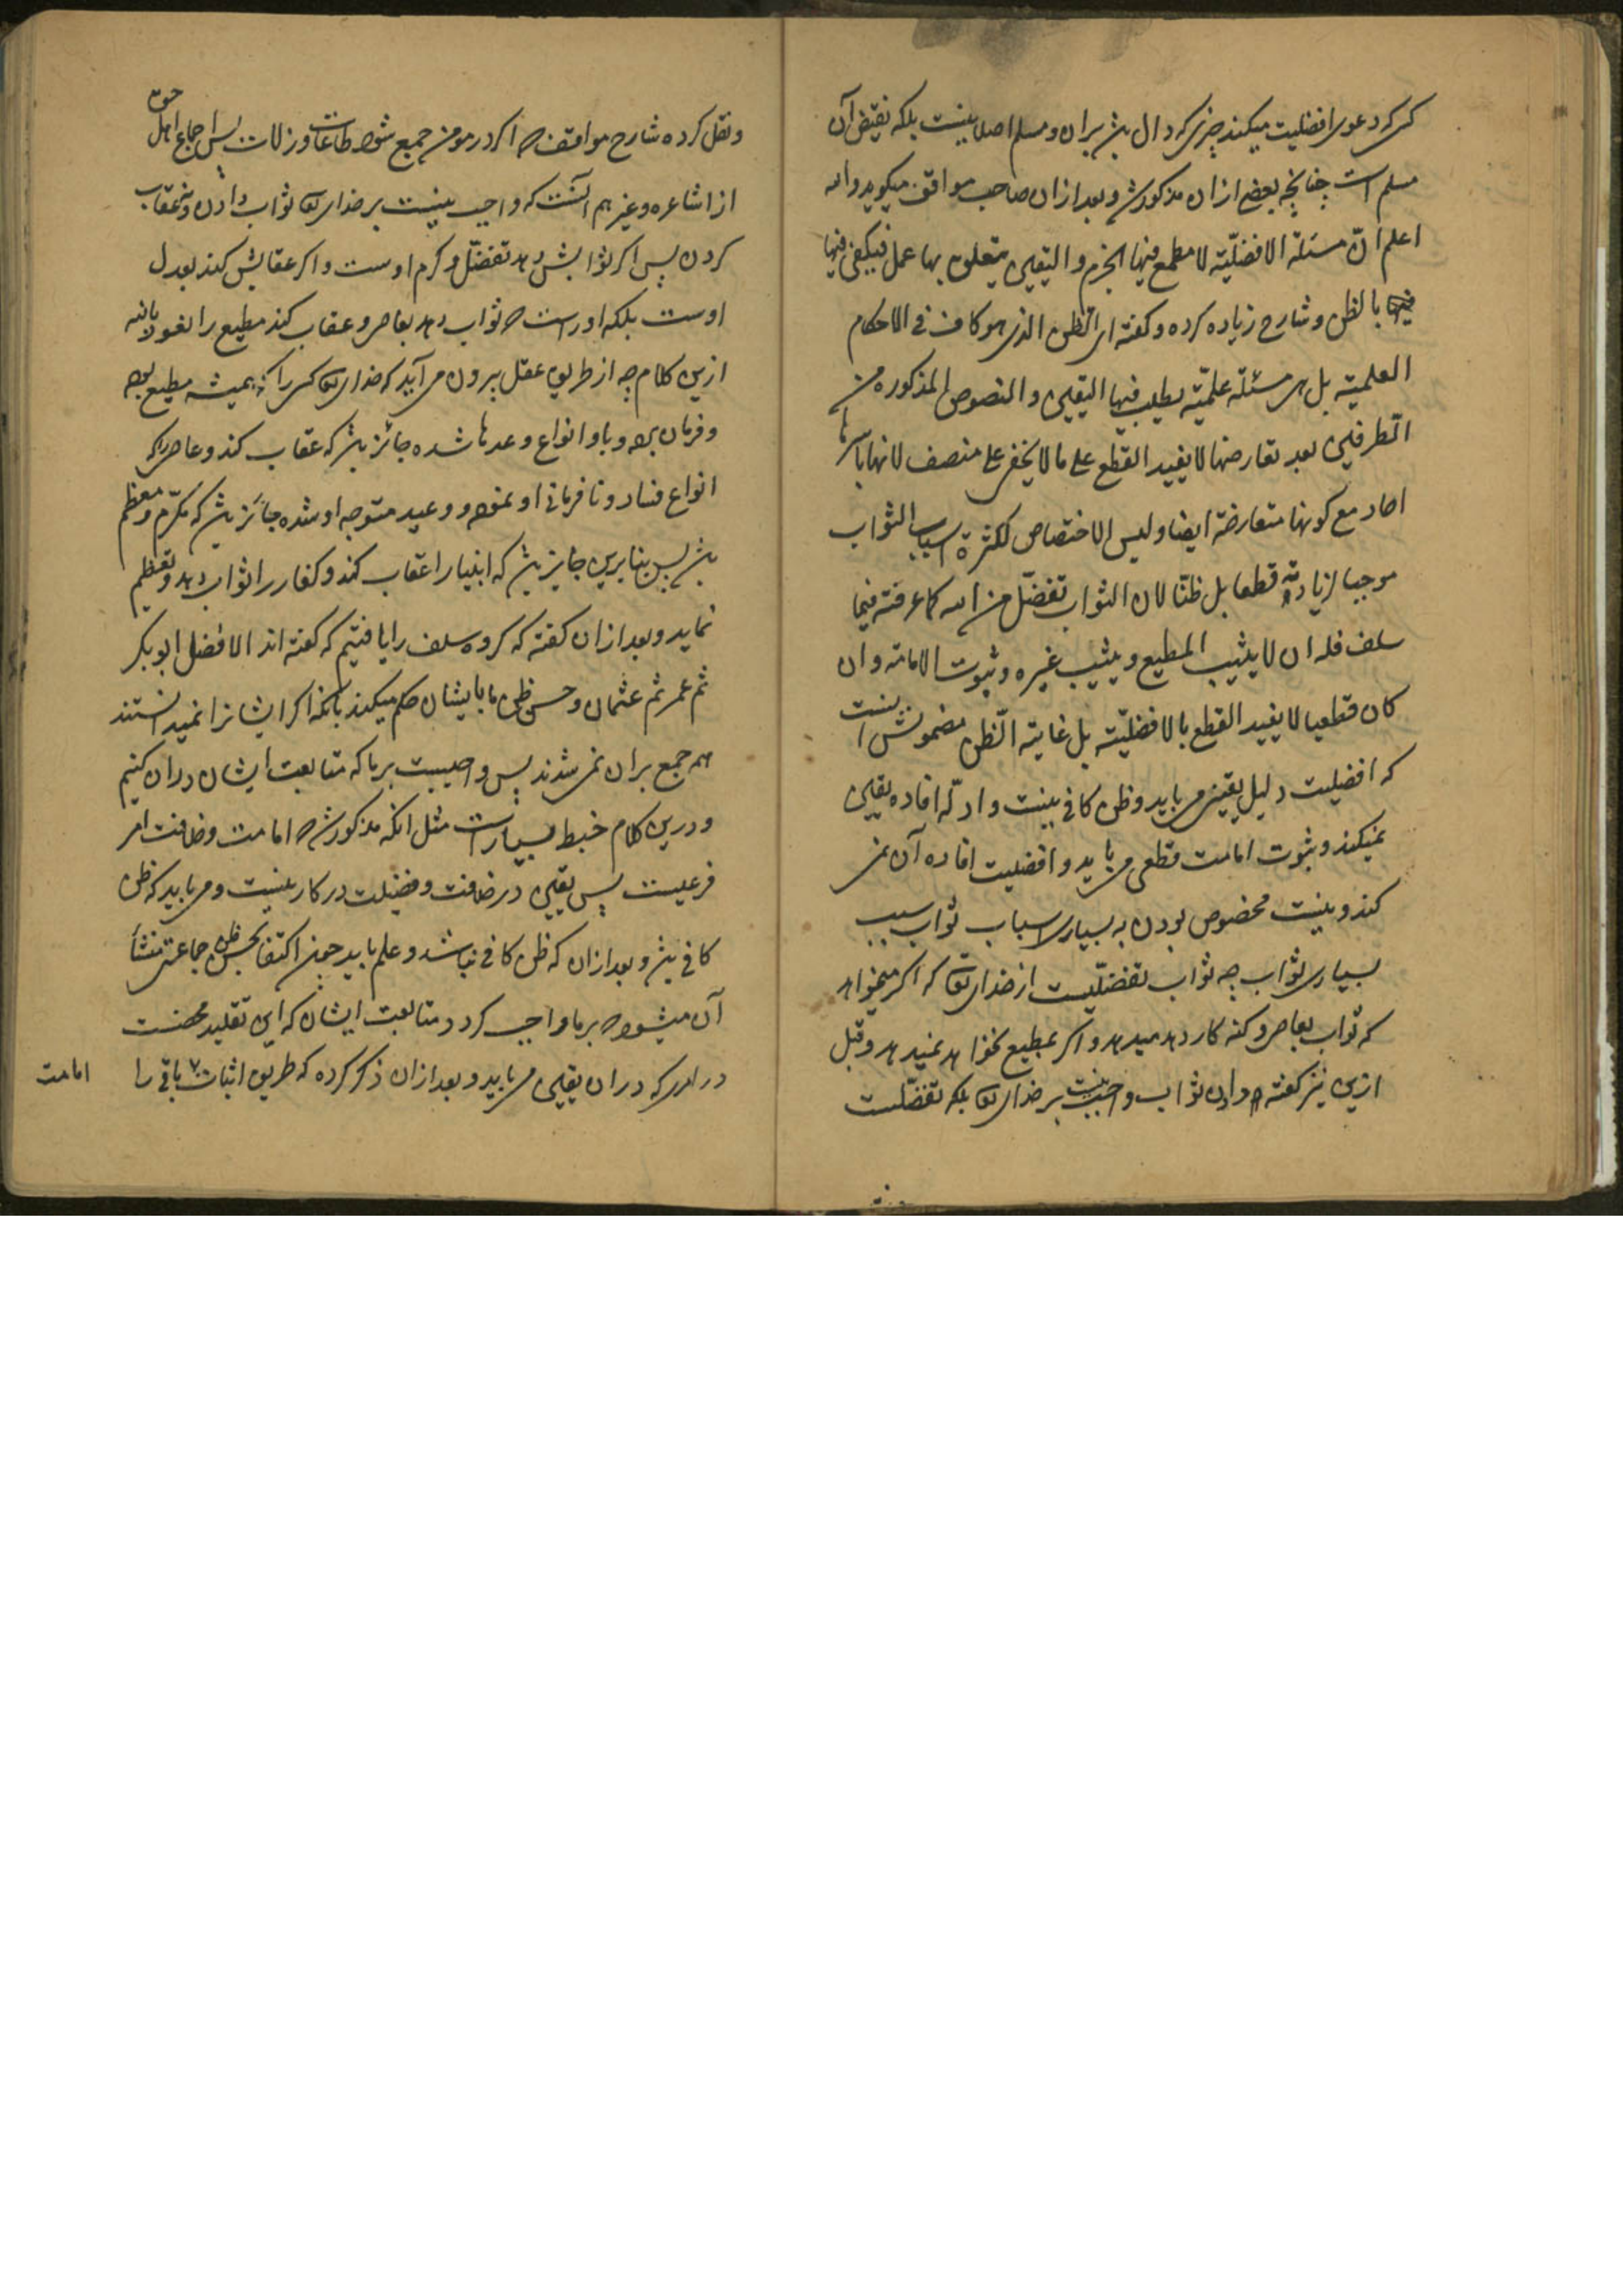 کسی که دعوی افضلیت میکند چیزی که دال باشد بران و مسلم اصلا نیست بلکه نقیض آن
مسلم است چنانچه بعضی ازان مذکور شد و بعد ازان صاحب مواقف میگوید و الله
اعلم انّ مسئلة الافضلیّة لا مطمع فیها الجزم و الیقین یتعلق بها عمل فیکفی فیها
بالظن و شارح زیاده کرده و کفته ای الظن الذی هو کاف فی الاحکام
العلمیة بل هی مسئلة علمیّة یطلب فیها الیقین و النصوص المذکوره من
الطرفین بعد تعارضها لا یفید القطع علی ما لا یخفی علی منصف لانها باسرها
احاد مع کونها متعارضة ایضا و لیس الاختصاص لکثرة اسباب الثواب
موجبا لزیادته قطعا بل ظنّا لان الثواب تفضّل من الله کما عرفته فیما
سلف فله ان لا یثیب المطیع و یثیب غیره و ثبوت الامامة و ان
کان قطعیا لا یفید القطع بالافضلیّة بل غایته الظن مضمونش اینست
که افضلیت دلیل یقینی می باید و ظن کافی نیست و ادلّه افاده یقین
نمیکند و ثبوت امامت قطعی می باید و افضلیت افاده آن نمی
کند و نیست مخصوص بودن به بسیاری اسباب ثواب سبب
بسیاری ثواب چه ثواب تفضّلیست از خدای تعا که اگر میخواهد
که ثواب بعاصی و کنه کار دهد میدهد و اگر بمطیع نخواهد نمیدهد و قبل
ازین نیز کفته که دادن ثواب واجب نیست بر خدای تعا بلکه تفضّلست
و نقل کرده شارح مواقف که اگر در مومن جمیع شود طاعات و زلات پس اجماع اهل حق
از اشاعره و غیرهم آنست که واجب نیست بر خدای تعا ثواب دادن و نه عقاب
کردن پس اگر ثوابش دهد تفضّل و کرم اوست و اگر عقابش کند بعدل
اوست بلکه او راست که ثواب دهد بعاصی و عقاب کند مطیع را نعوذ بالله
ازین کلام چه از طریق عقل بیرون می آید که خدای تعا کسی را که همیشه مطیع بوده
و فرمان برده و باو انواع وعدها شده جائز باشد که عقاب کند و عاصی را که
انواع فساد و نافرمانی او نموده و وعید متوجه او شده جائز باشد که مکرّم و معظم
باشد پس بنابرین جایز باشد که انبیا را عقاب کند و کفار را ثواب دهد و تعظیم
نماید و بعد ازان کفته که کروه سلف را یافتیم که کفته اند الافضل ابوبکر
ثم عمر ثم عثمان و حسن ظن ما بایشان حکم میکند بانکه اگر ایشان را نمیدانستند
هم جمع بران نمی شدند پس واجبست بر ما که متابعت ایشان دران کنیم
و درین کلام خبط بسیار است مثل انکه مذکور شد که امامت و خلافت امر
فرعیست پس یقین در خلافت و فضیلت در کار نیست و می باید که ظن
کافی باشد و بعد ازان که ظن کافی نباشد و علم باید چون اکتفا بحسن ظن جماعتی منشأ
آن میشود که بر ما واجب کردد متابعت ایشان که این تقلید محضست
در امری که دران یقین می باید و بعد ازان ذکر کرده که طریق اثبات باقی را
امامت